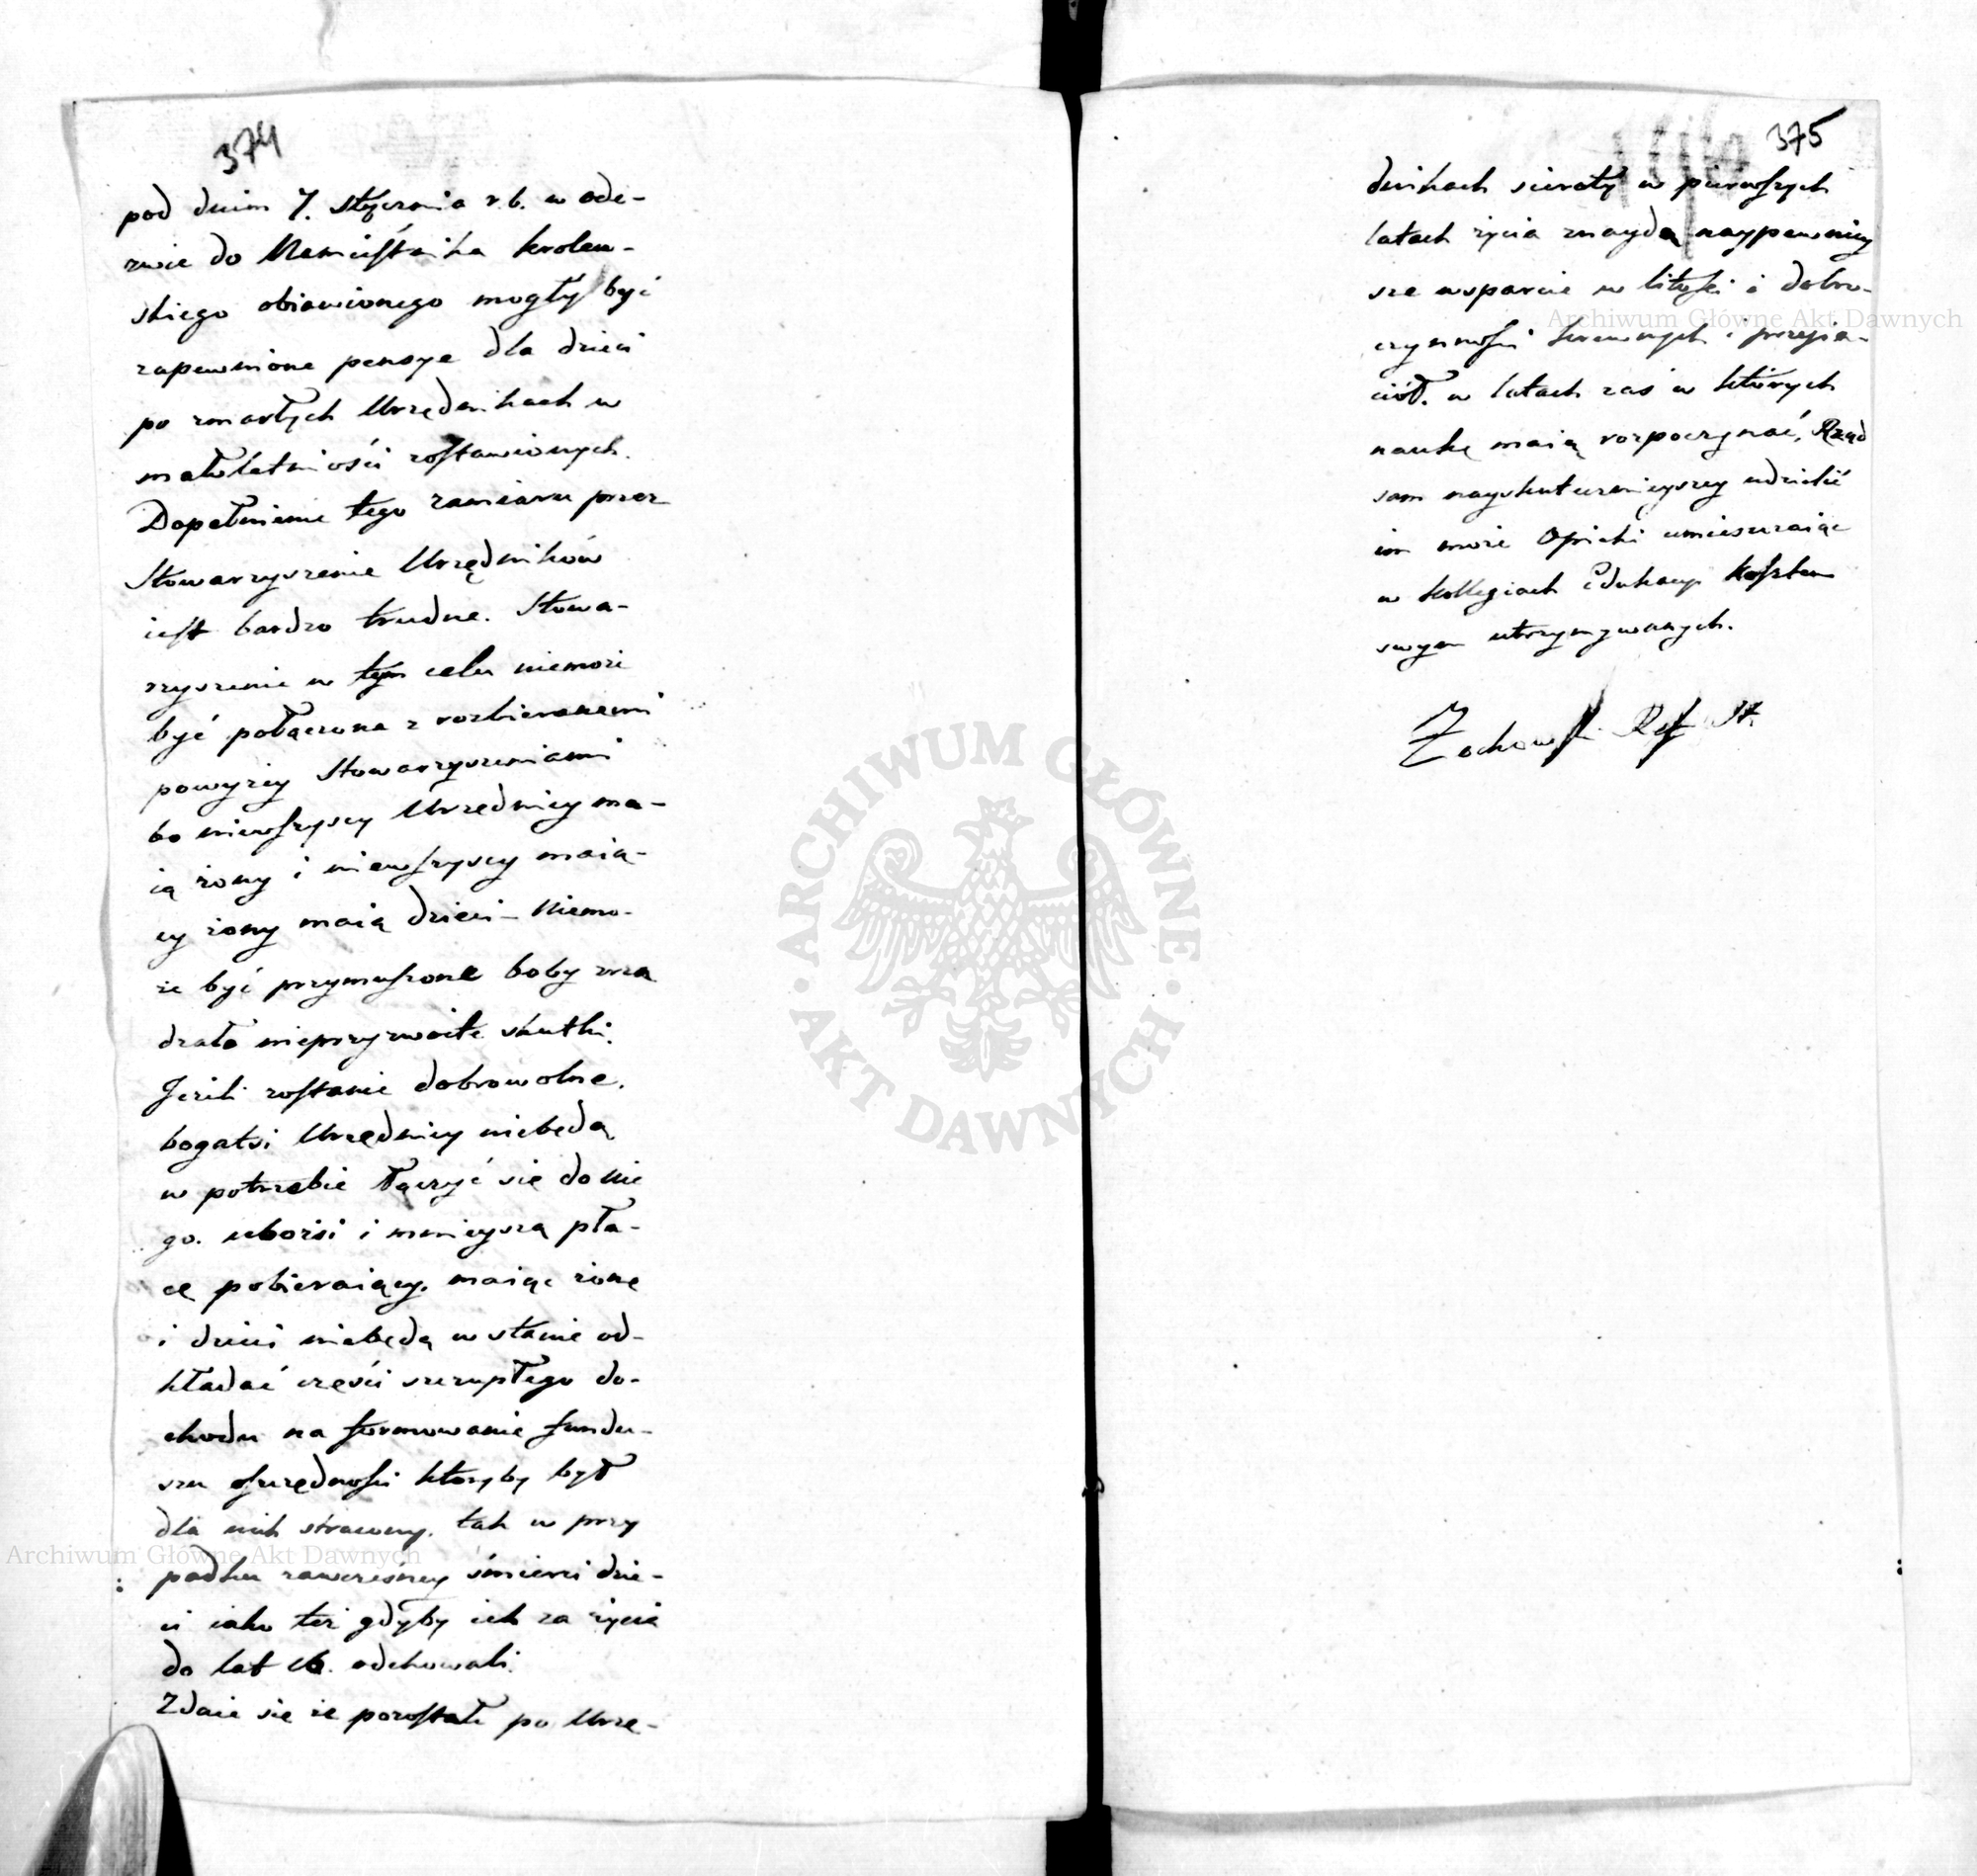 374
pod dniem 7. Stycznia r.b. w ode-
zwie do Namiestnika Krolew-
skiego obiawionego mogły być
zapewnione pensye dla dzieci
po zmarłych Urzędnikach w
małoletniości zostawionych.
Dopełnienie tego zamiaru przez
Stowarzyszenie Urzędników
iest bardzo trudne. Stowa-
rzyszenie w tym celu niemoże
być połączone z rozbieranemi
powyżey Stowarzyszeniami
bo niewszyscy Urzędnicy ma-
ią żony i niewszyscy maią-
cy żony maią dzieci – Niemo-
że być przymuszone boby zrza
dzało nieprzyzwoite skutki.
Jeżeli zostanie dobrowolne.
bogatsi Urzędnicy niebędą
w potrzebie łączyć się do nie
go. ubożsi i mnieyszą pła-
cę pobieraiący. maiąc żonę
i dzieci niebędą w stanie od-
kładać części szczupłego do-
chodu na formowanie fundu-
szu oszczędności któryby był
dla nich stracony. tak w przy
padku zawczesney śmierci dzie-
ci iako też gdyby ich za życia
do lat 16. odchowali.
Zdaie się że pozostałe po Urzę-
375
dnikach sieroty w pierwszych
latach życia znaydą naypewniey
sze wsparcie w litości i dobro-
czynności krewnych i przyia-
ciół. w latach zaś w których
naukę maią rozpoczynać, Rząd
sam nayskutecznieyszey udzielić
im może Opieki umieszczaiąc
w Kollegiach Edukacyi Kosztem
swym utrzymywanych.
Żochowski Ref St.
Archiwum Główne Akt Dawnych
Archiwum Główne Akt Dawnych
ARCHIWUM GŁÓWNE · AKT DAWNYCH ·